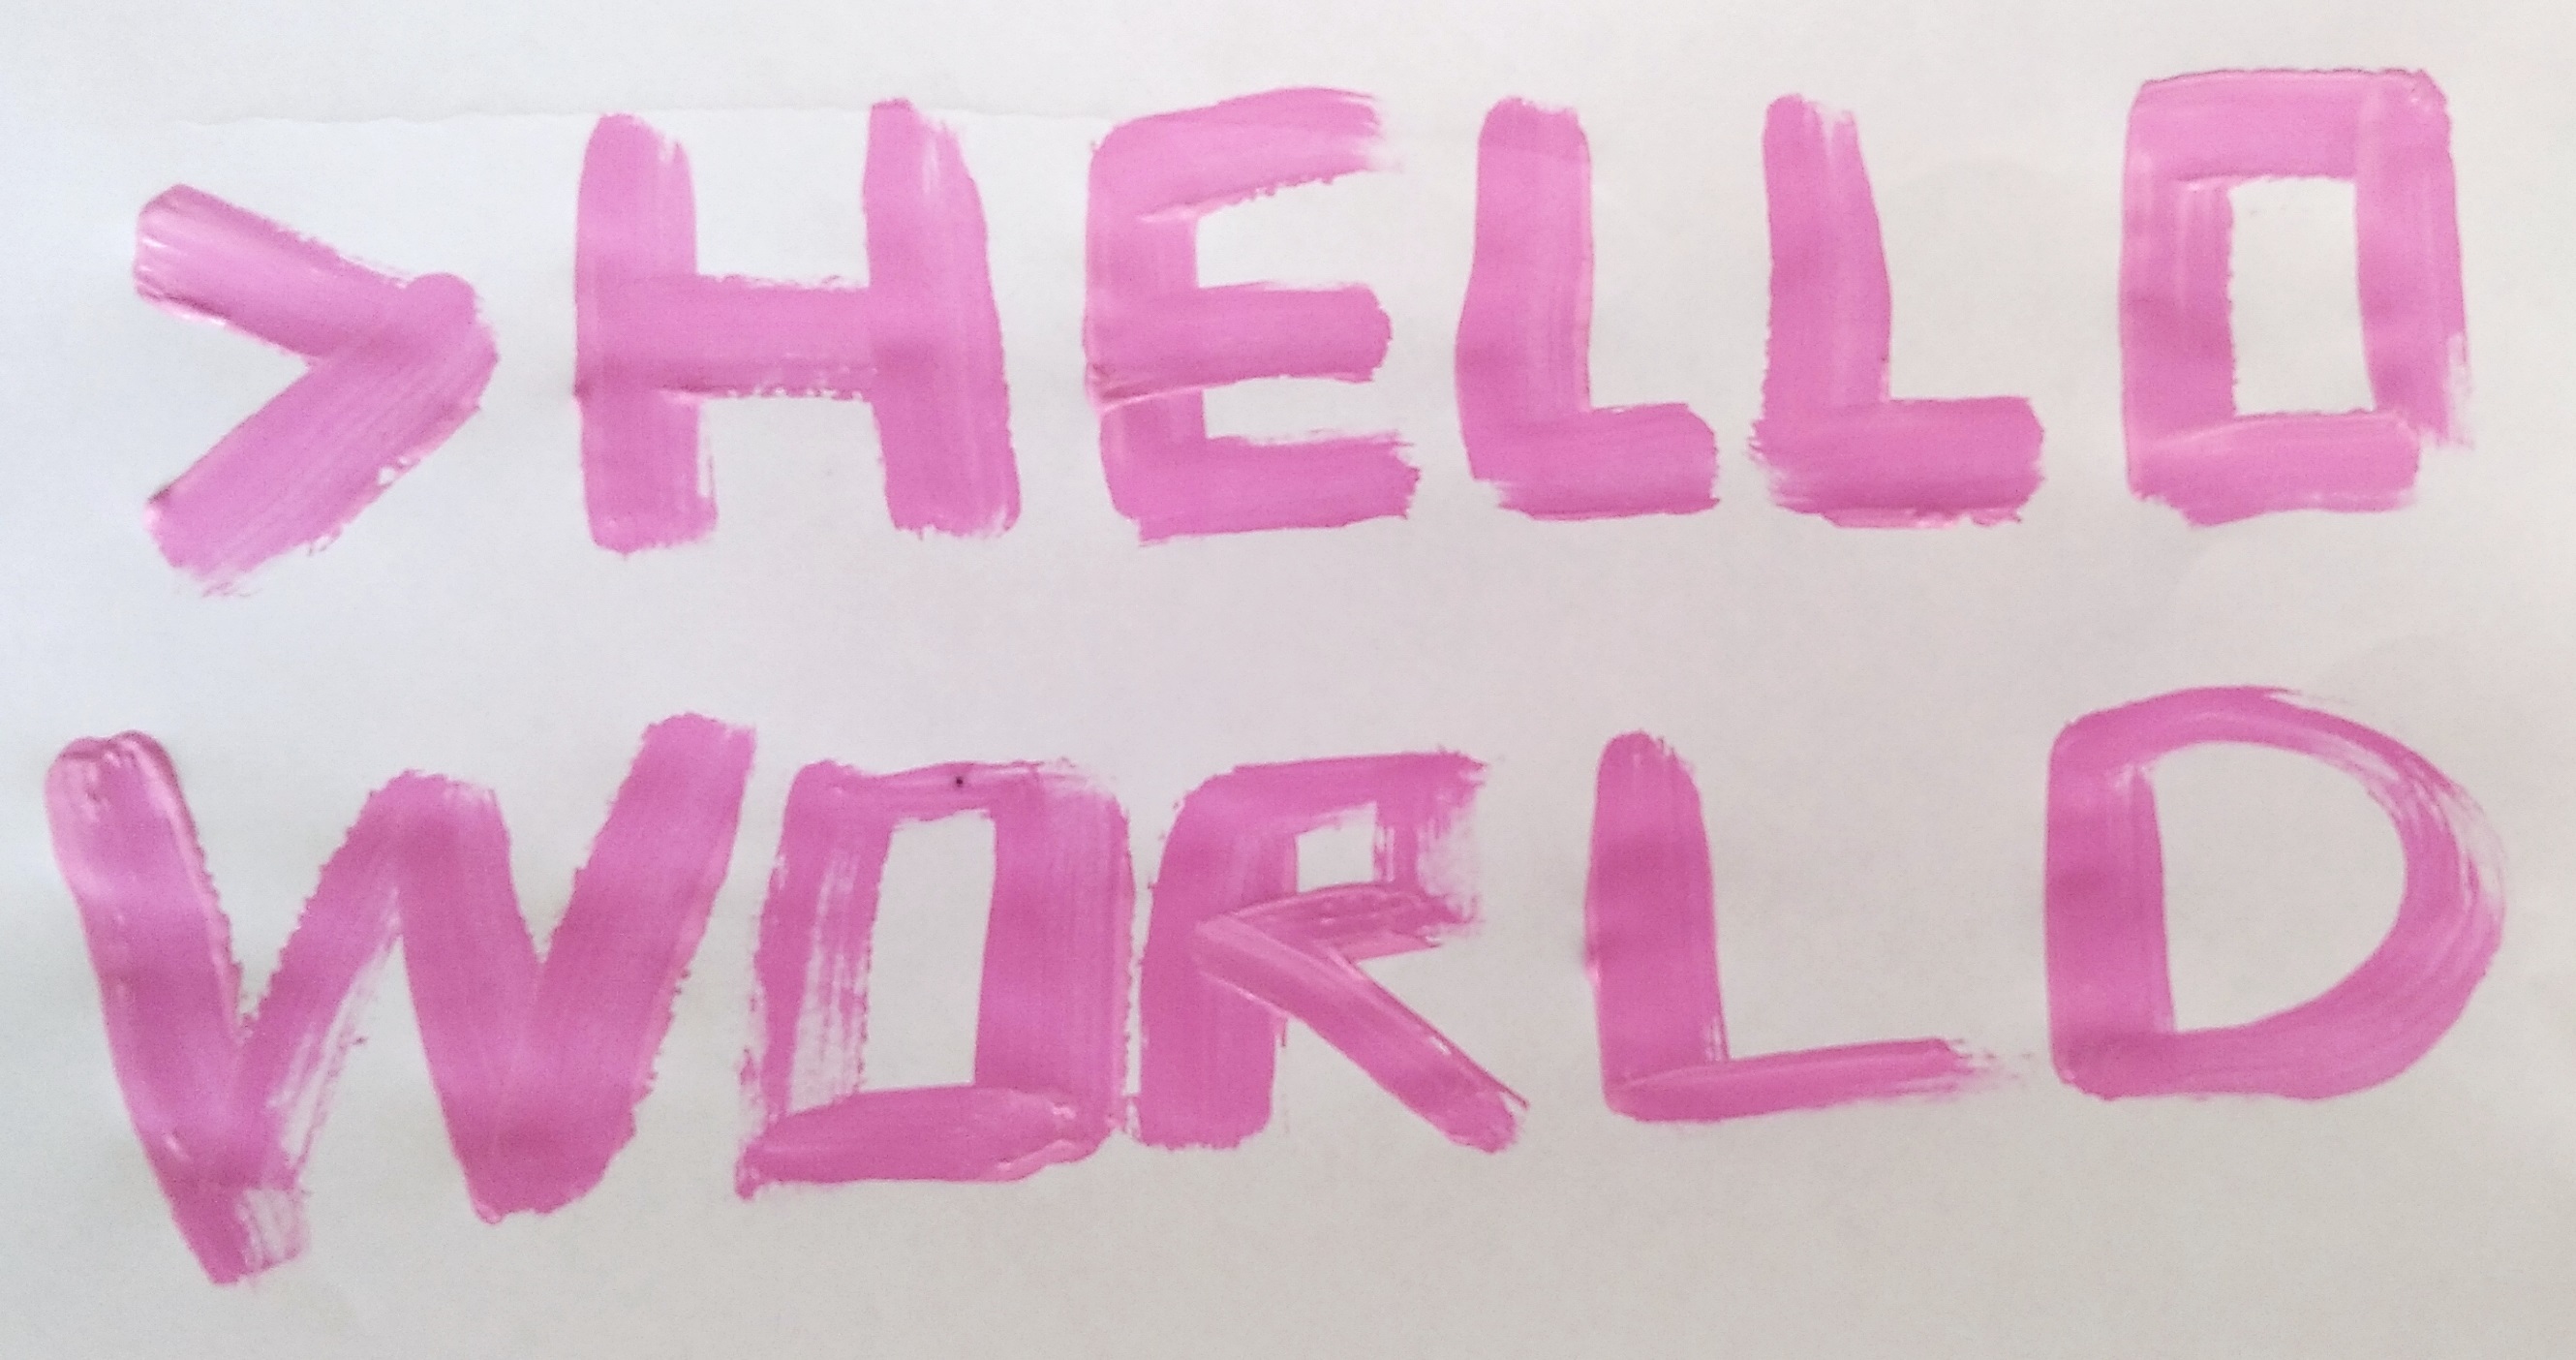 >HELLO
WORLD